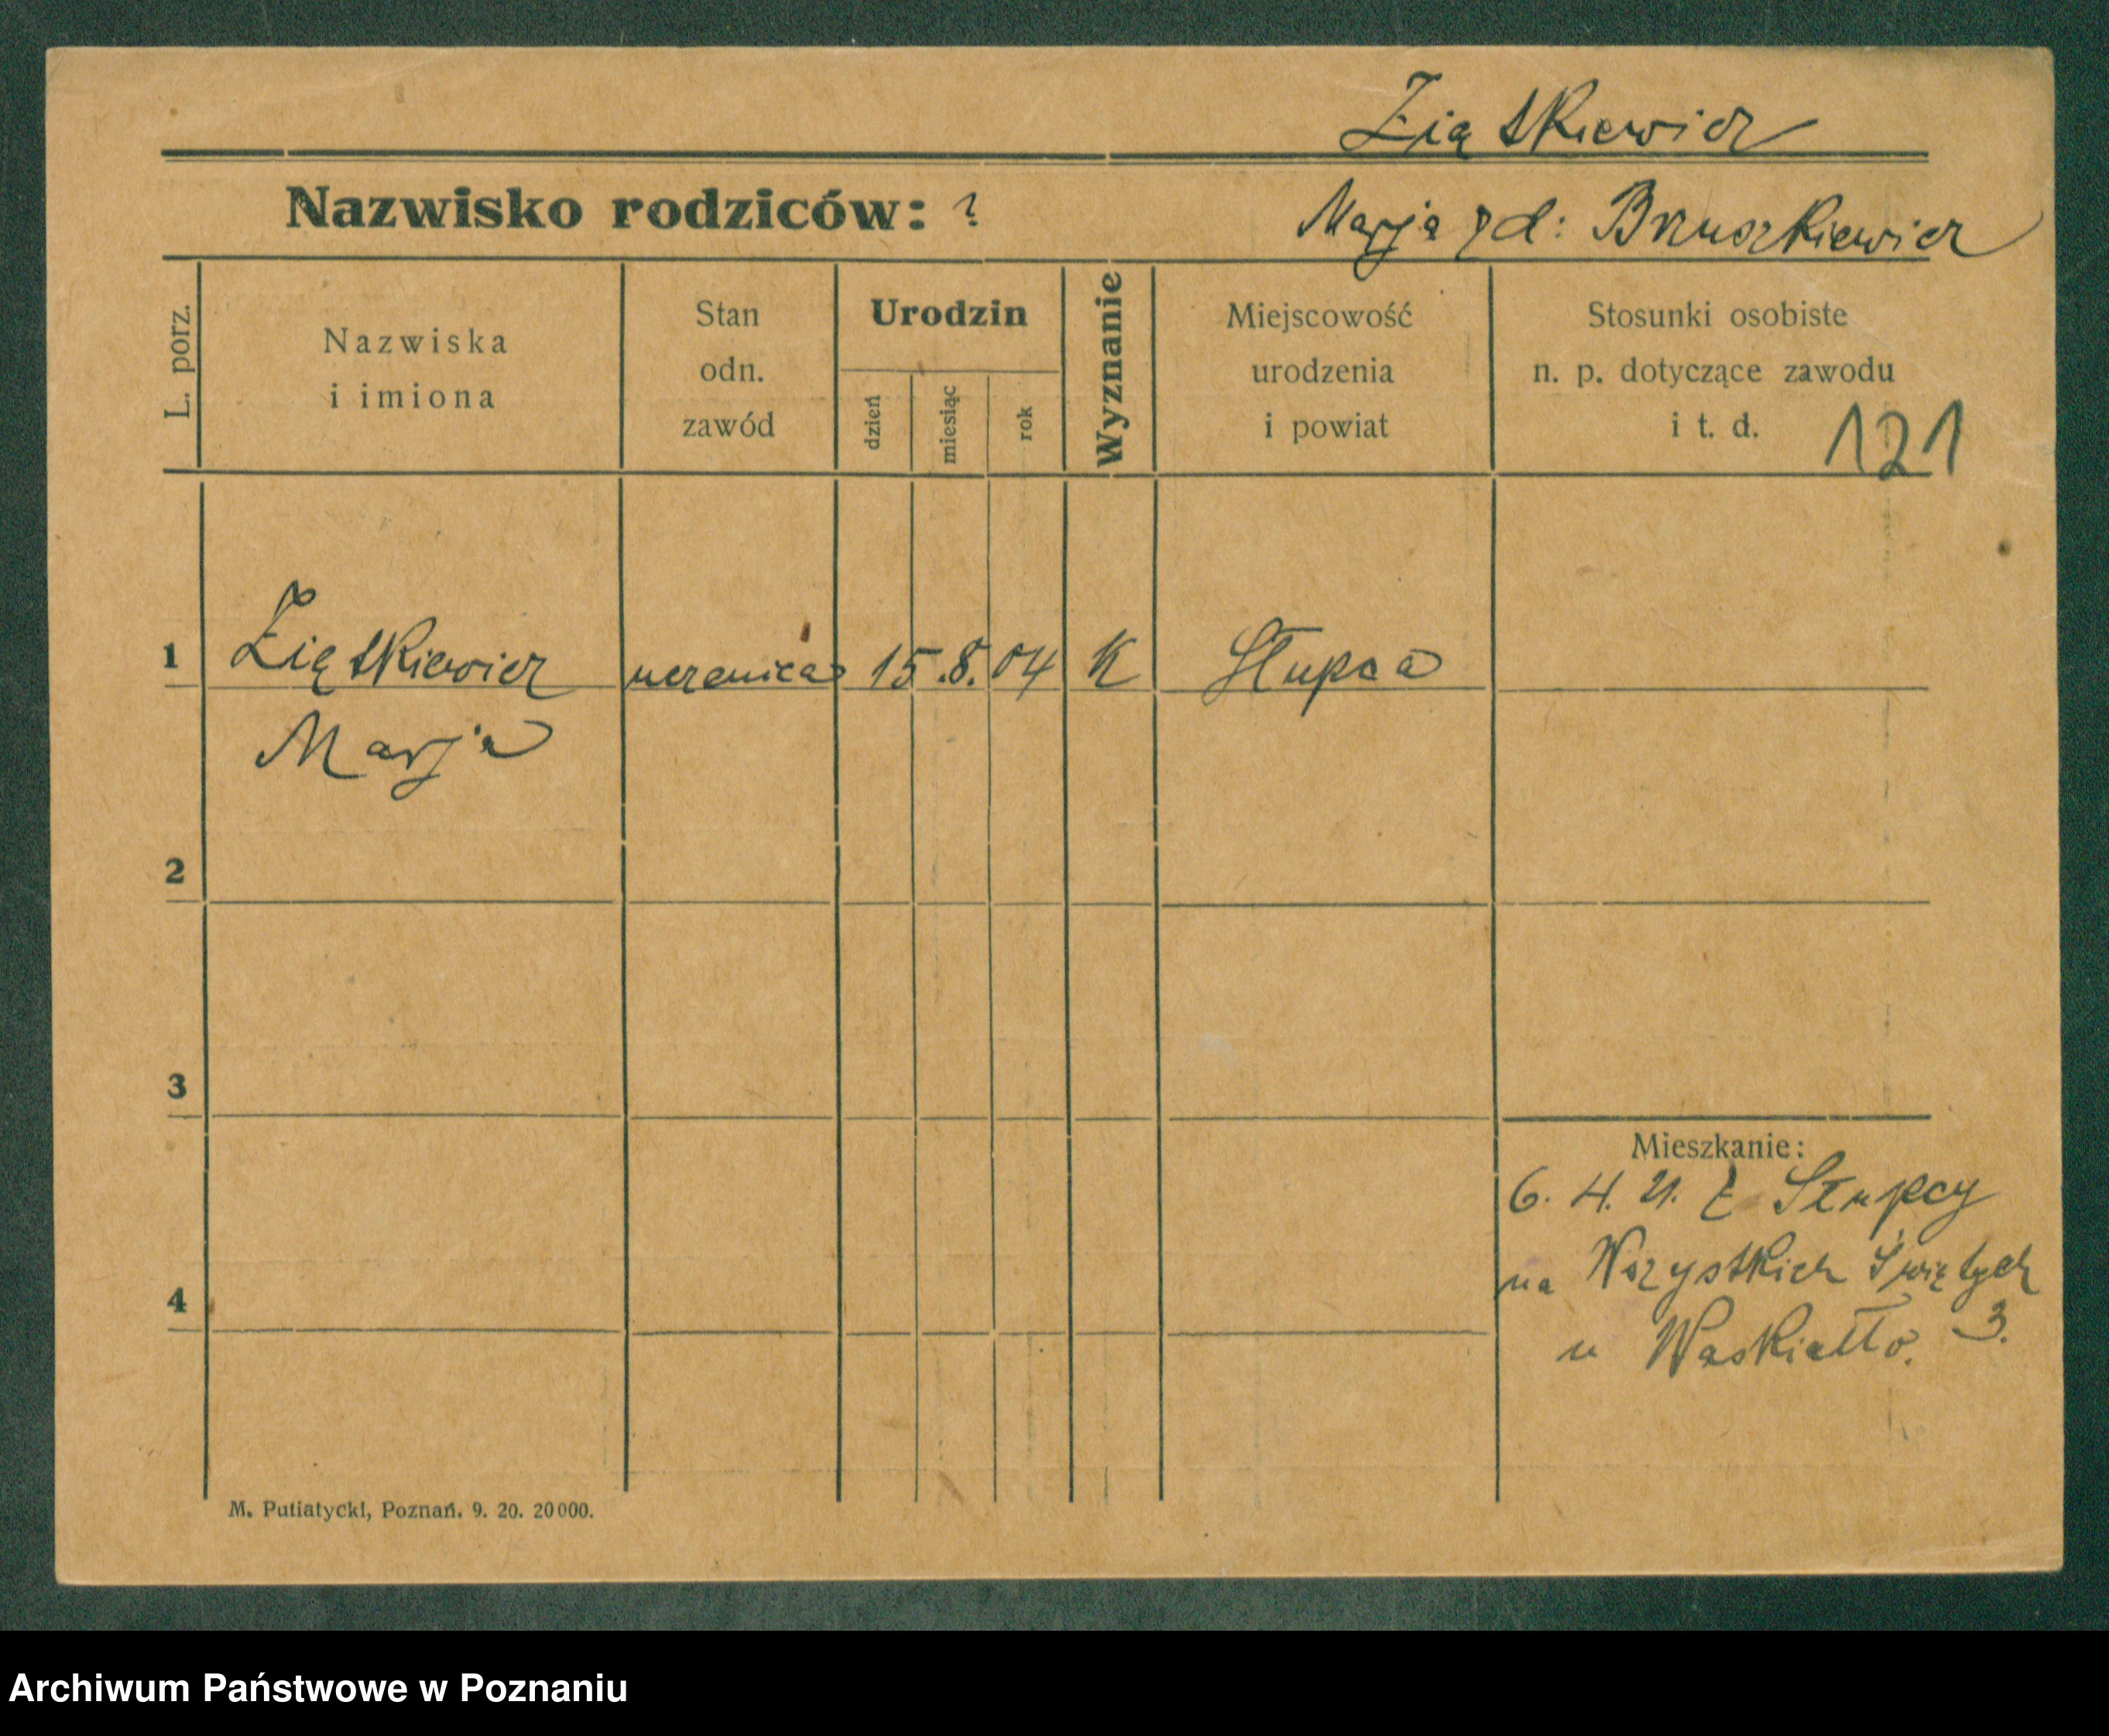 Ziątkiewicz
Nazwisko rodziców: ?
Marja zd: Bruszkiewicz
L. porz.
Nazwiska
i imiona
Stan
odn.
zawód
Urodzin
dzień
miesiąc
rok
Wyznanie
Miejscowość
urodzenia
i powiat
Stosunki osobiste
n. p. dotyczące zawodu
i t. d.
121
1 Ziątkiewicz uczenica 15.8.04 K Słupca
Marja
2
3
4
Mieszkanie:
6. 4. 21. z Słupcy
na Wszystkich Świętych
u Waskiałło. 3.
M. Putiatycki, Poznań. 9. 20. 20000.
Archiwum Państwowe w Poznaniu